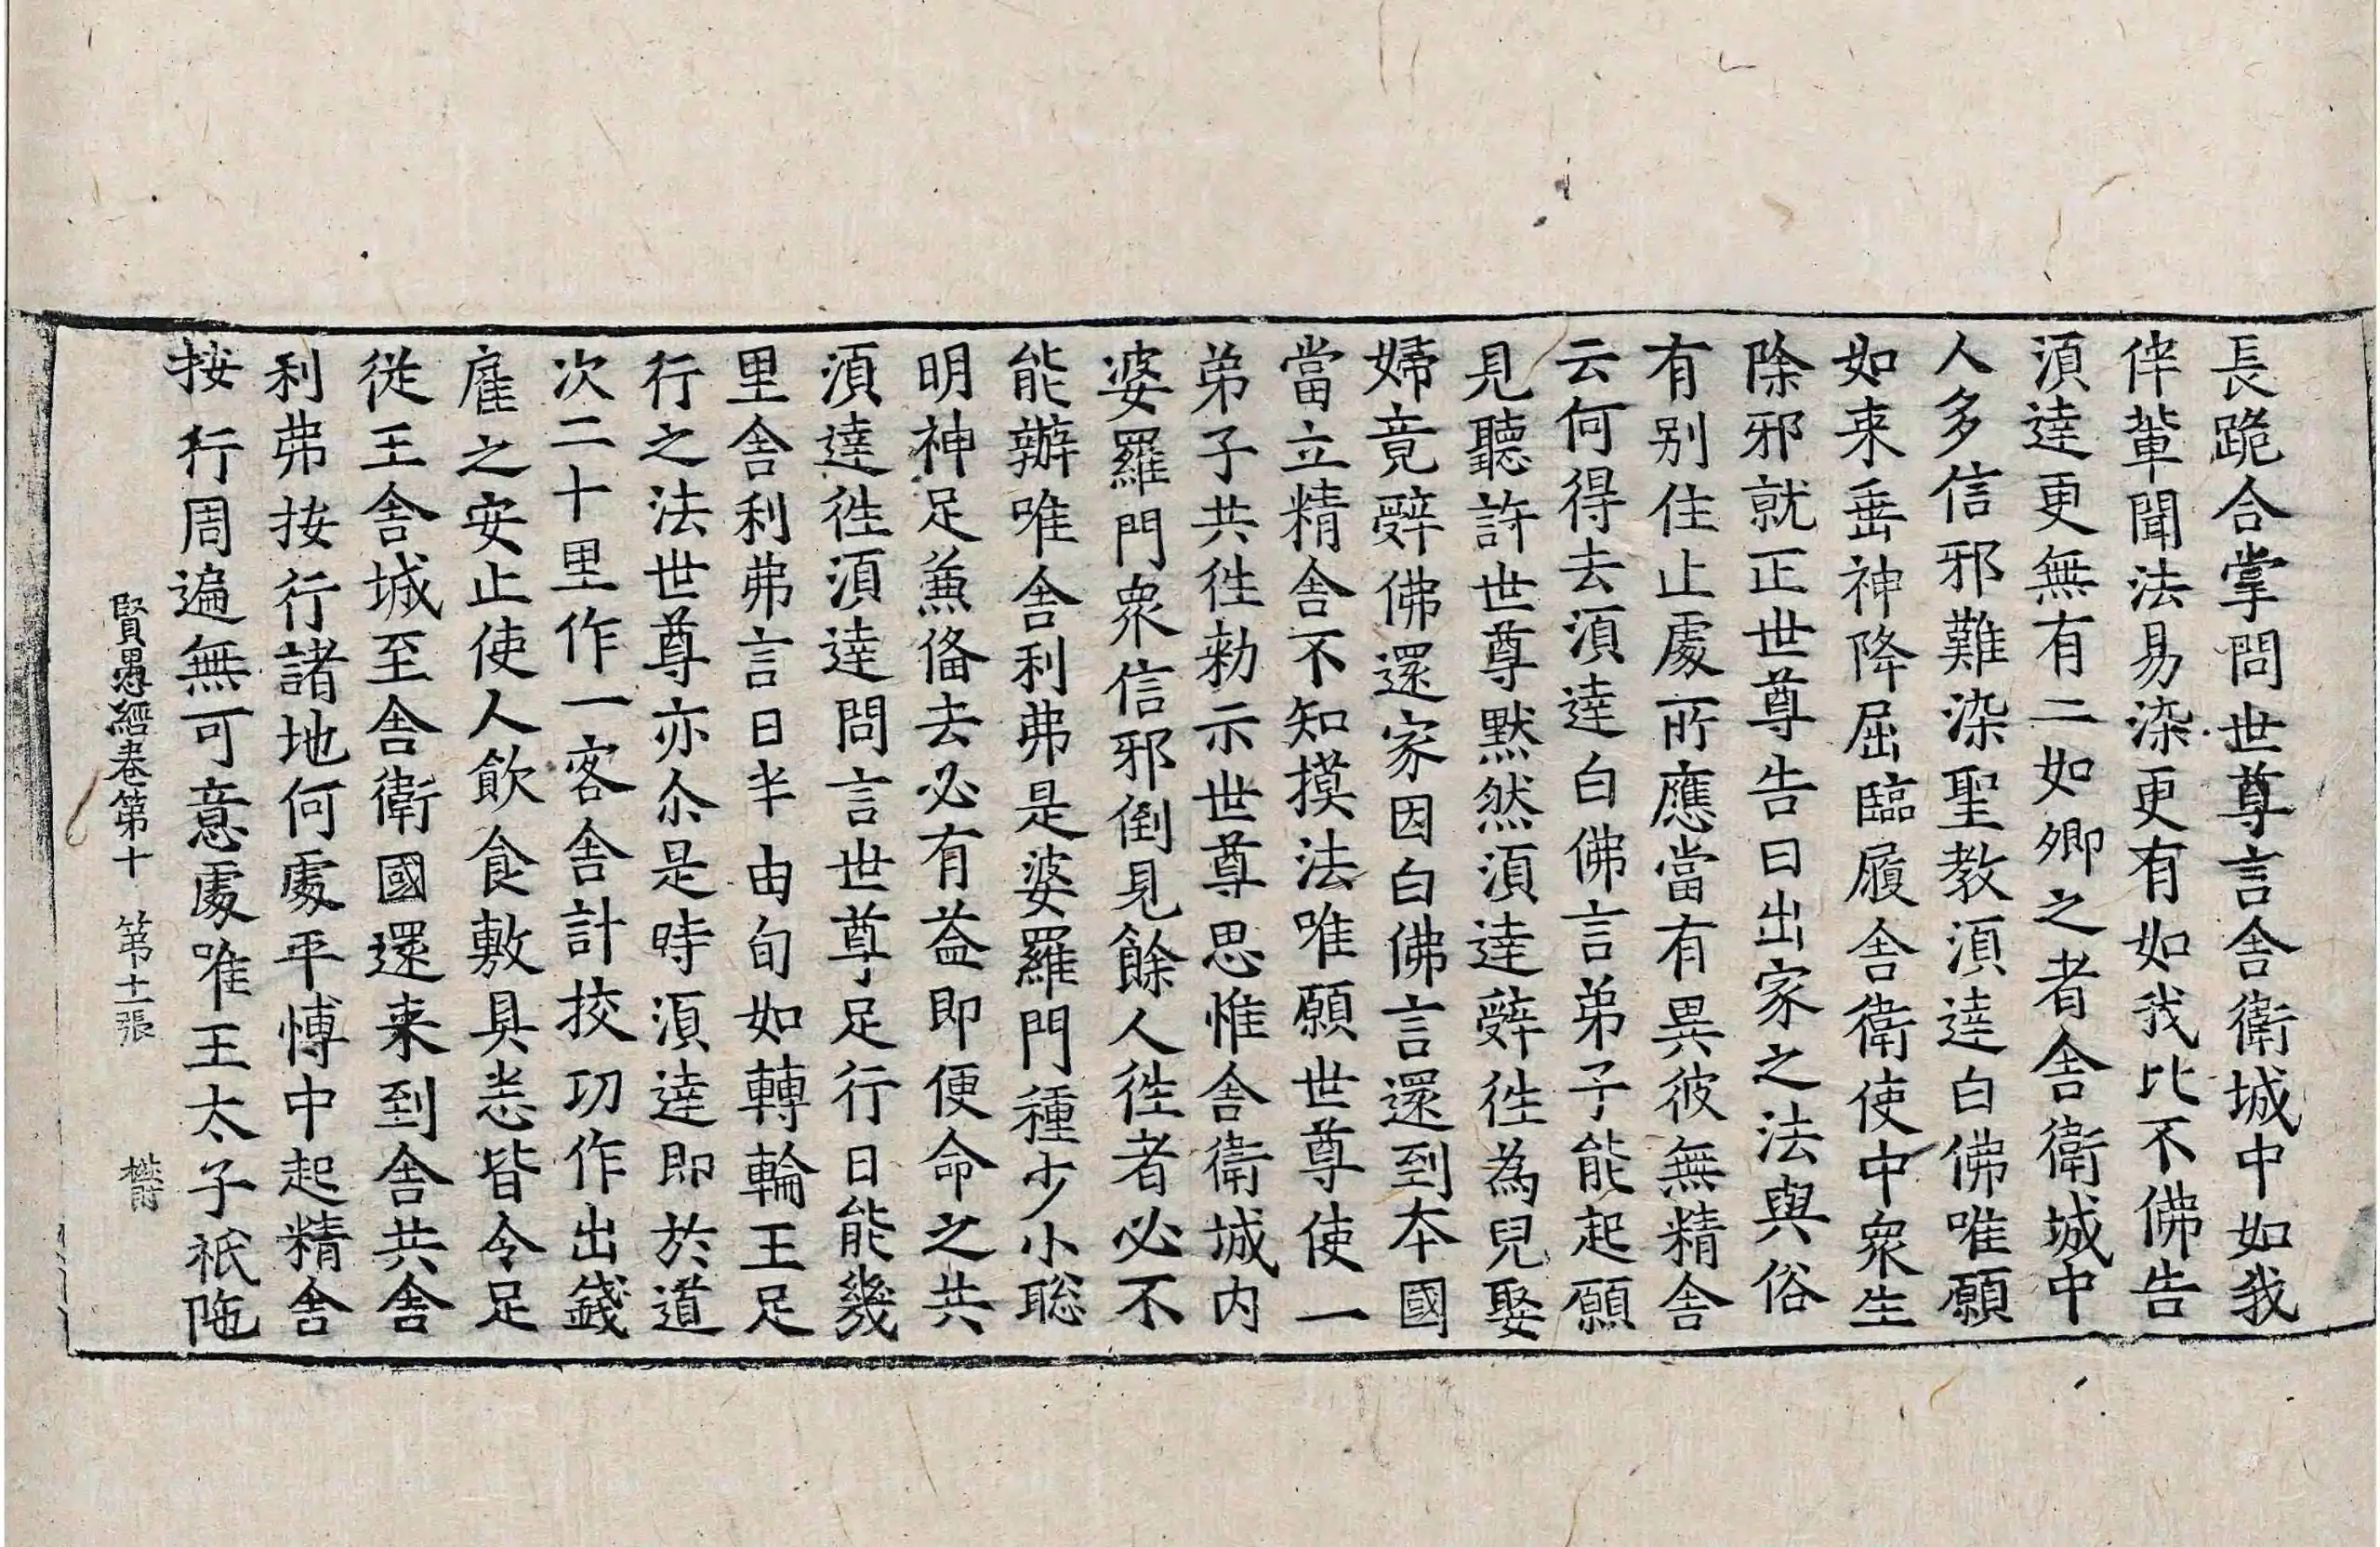 長跪合掌問世尊言舍衛城中如我
伴輩聞法易染更有如我比不佛告
湏達更無有二如卿之者舍衛城中
人多信邪難染聖教湏達白佛唯願
如来垂神降屈臨履舍衛使中衆生
除邪就正世尊告曰出家之法與俗
有别住止處所應當有異彼無精舍
云何得去湏達白佛言弟子能起願
見聽許世尊黙然湏達辝徃為兒娶
婦竟辝佛還家因白佛言還到本國
當立精舍不知摸法唯願世尊使一
弟子共徃勑示世尊思惟舍衛城内
婆羅門衆信邪倒見餘人徃者必不
能辦唯舍利弗是婆羅門種少小聡
明神足兼俻去必有益即便命之共
湏達徃湏達問言世尊足行日能幾
里舍利弗言日半由旬如轉輪王足
行之法世尊亦尒是時湏達即於道
次二十里作一客舍計挍功作出錢
雇之安止使人飲食敷具悉皆令足
從王舍城至舍衛國還来到舍共舍
利弗按行諸地何處平博中起精舍
按行周遍無可意處唯王太子祇陁
賢愚經卷第十 第十一張